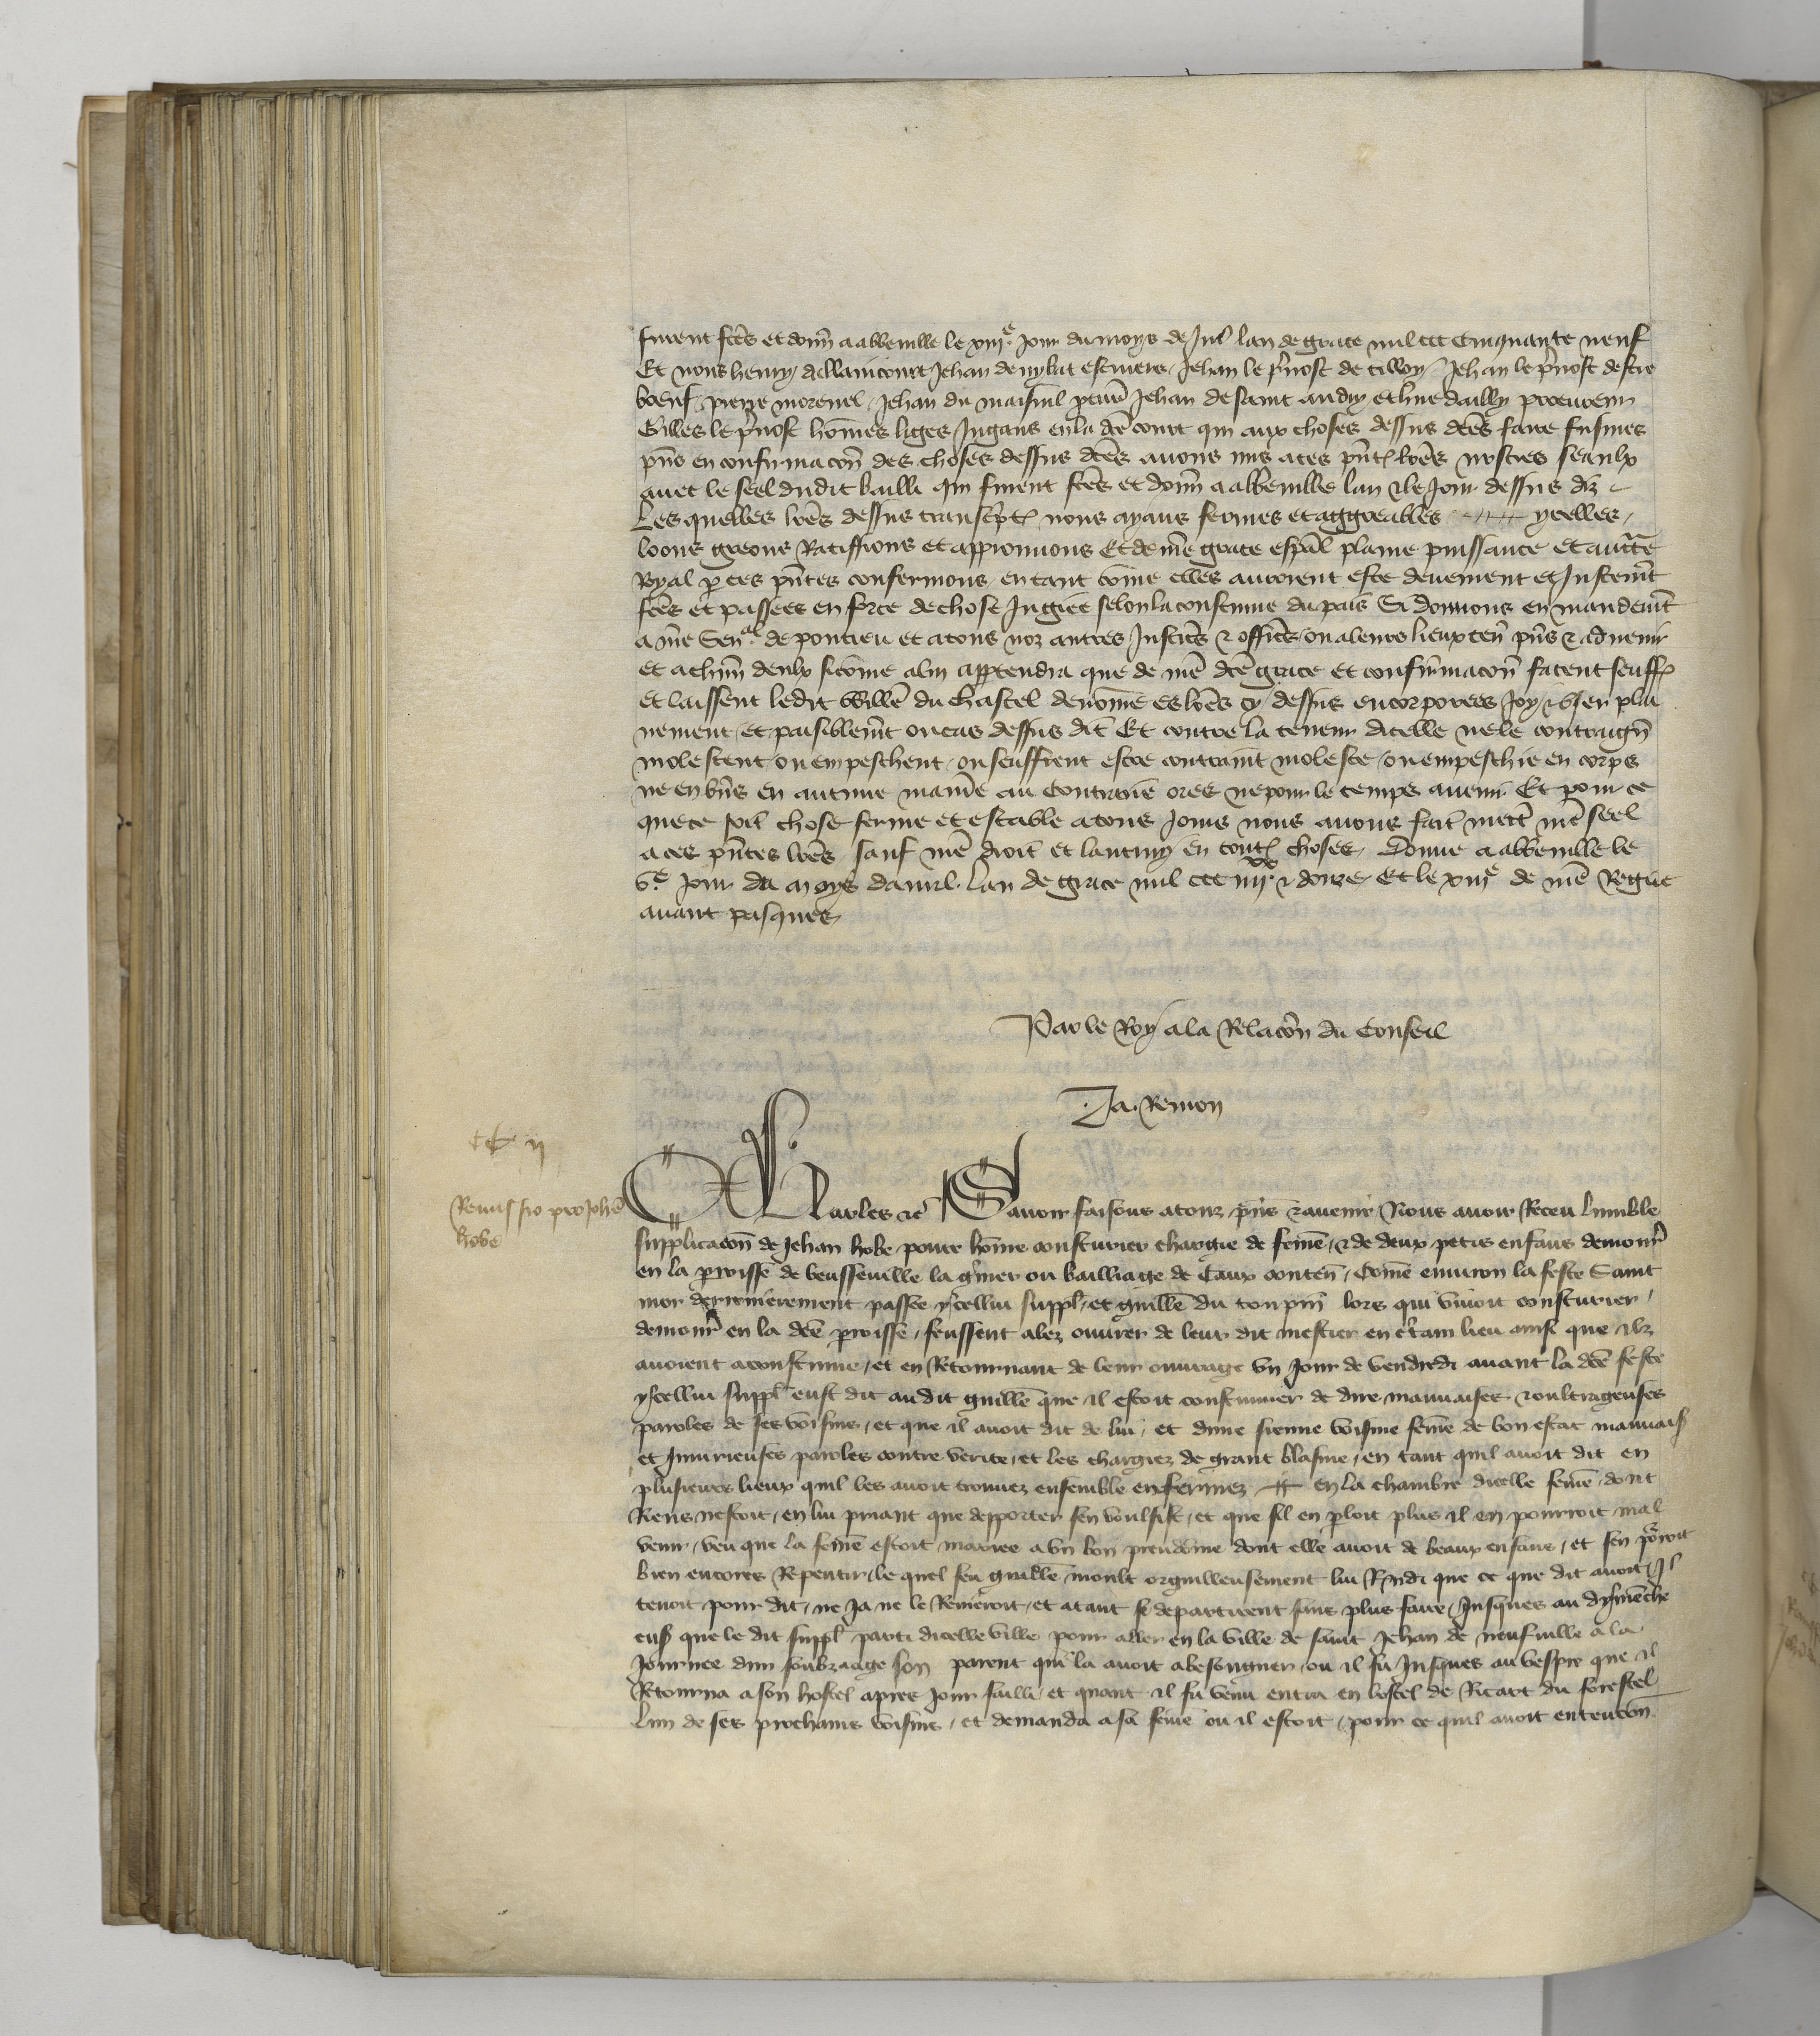 furent fces et donn a abbeville le xiije jour du moys de Juil lan de grace mil ccc Cinquante neuf
Et nous henry Jehan de escuiers Jehan le pvost de tilloy Jehan le pvost de
boenf pierre morenel Jehan du maisnil Jehan de saint et hue dailly procureur
Gilles le pvost hommes liges Jugans en la dce court qui aux choses dessus dces faire fusmes
pns en confirmacon des choses dessus dces avons mis a ces pntes lres nostres seaulx
avec le seel dudit bailli qui furent fces et donn a abbeville lan et le Jour dessus diz
Les quelles lres dessus transcpt nous ayans fermes et aggreables ycelles
loons greons Ratiffions et approuvons Et de nre grace espal plaine puissance et auctte
Royal p ces pntes confermons en tant come elles auroient este deuement et Justemt
fces et passees en force de chose Jugiee selon la constume du pais Si donnons en mandemt
a nre Senal de pontieu et a tous noz autres Justices et offices ou a leurs lieuxten pns et advenir
et a chun deulx sicome a lui apptendra que de nre dce grace et confirmacon facent seuffr
et laissent ledit Wille du Chastel denome es lres cy dessus encorporees Joy et user plai
nement et paisiblemt ou cas dessus dit Et contre la teneur dicelle ne le contraign
molestent ou empeschent ou seuffrent estre contraint moleste ou empeschie en corps
ne en bns en aucune maniere au Contraire ores ne pour le temps avenir Et pour ce
que ce soit chose ferme et estable a tous Jours nous avons fait mettr nre seel
a ces pntes lres sauf nre droit et lautruy en toutes choses Donne a abbeville le
ve Jour du moys davril Lan de grace mil ccc iiijxx et douze Et le xiije de nre Regne
avant pasques
Par le Roy a la Relacon du Conseil
Ja. Remon
Remissio pro Johe
hobe
Charles etc Savoir faisons a touz pns et avenir Nous avoir Receu lumble
supplicacon de Jehan hobe povre home cousturier chargie de feme et de deux petis enfans demour
en la proisse de beusseville la gmer ou bailliage de Caux conten Come environ la feste Saint
mor derrenierement passee ycellui suppl et guille du toupin lors qui vivoit cousturier
demour en la dce proisse feussent alez ouvrer de leur dit mestier en ctain lieu ainsi que ilz
avoient acoustume et en Retournant de leur ouvrage un Jour de vendredi avant la dce feste
ycellui suppl eust dit audit guille que il estoit coustumier de dire mauvaises et oultrageuses
paroles de ses voisins et que il avoit dit de lui et dune sienne voisine feme de bon estat mauvais
et Iniurieuses paroles contre verite et les chargiez de grant blasme en tant quil avoit dit en
plusieurs lieux quil les avoit trouvez ensemble enfermez en la chambre dicelle feme dont
Riens nestoit en lui priant que depporter sen voulsist et que sil en ploit plus il en pourroit mal
venir veu que la feme estoit mariee a un bon preudome dont elle avoit de beaux enfans et sen porroit
bien encores Repentir le quel feu guille moult orguilleusement lui Rndi que ce que dit avoit Il
tenoit pour dit ne Ja ne le Renieroit et atant se departirent sans plus faire Jusques au dymenche
ens que le dit suppl parti dicelle ville pour aller en la ville de saint Jehan de neufville a la
Journee dun soubzaage son parent qui la avoit abesongner ou il fu Jusques au vespre que il
Retourna a son hostel apres Jour failli et quant il fu venu entra en lostel de Ricart du forestel
lun de ses prochains voisins et demanda a sa feme ou il estoit pour ce quil avoit entencon